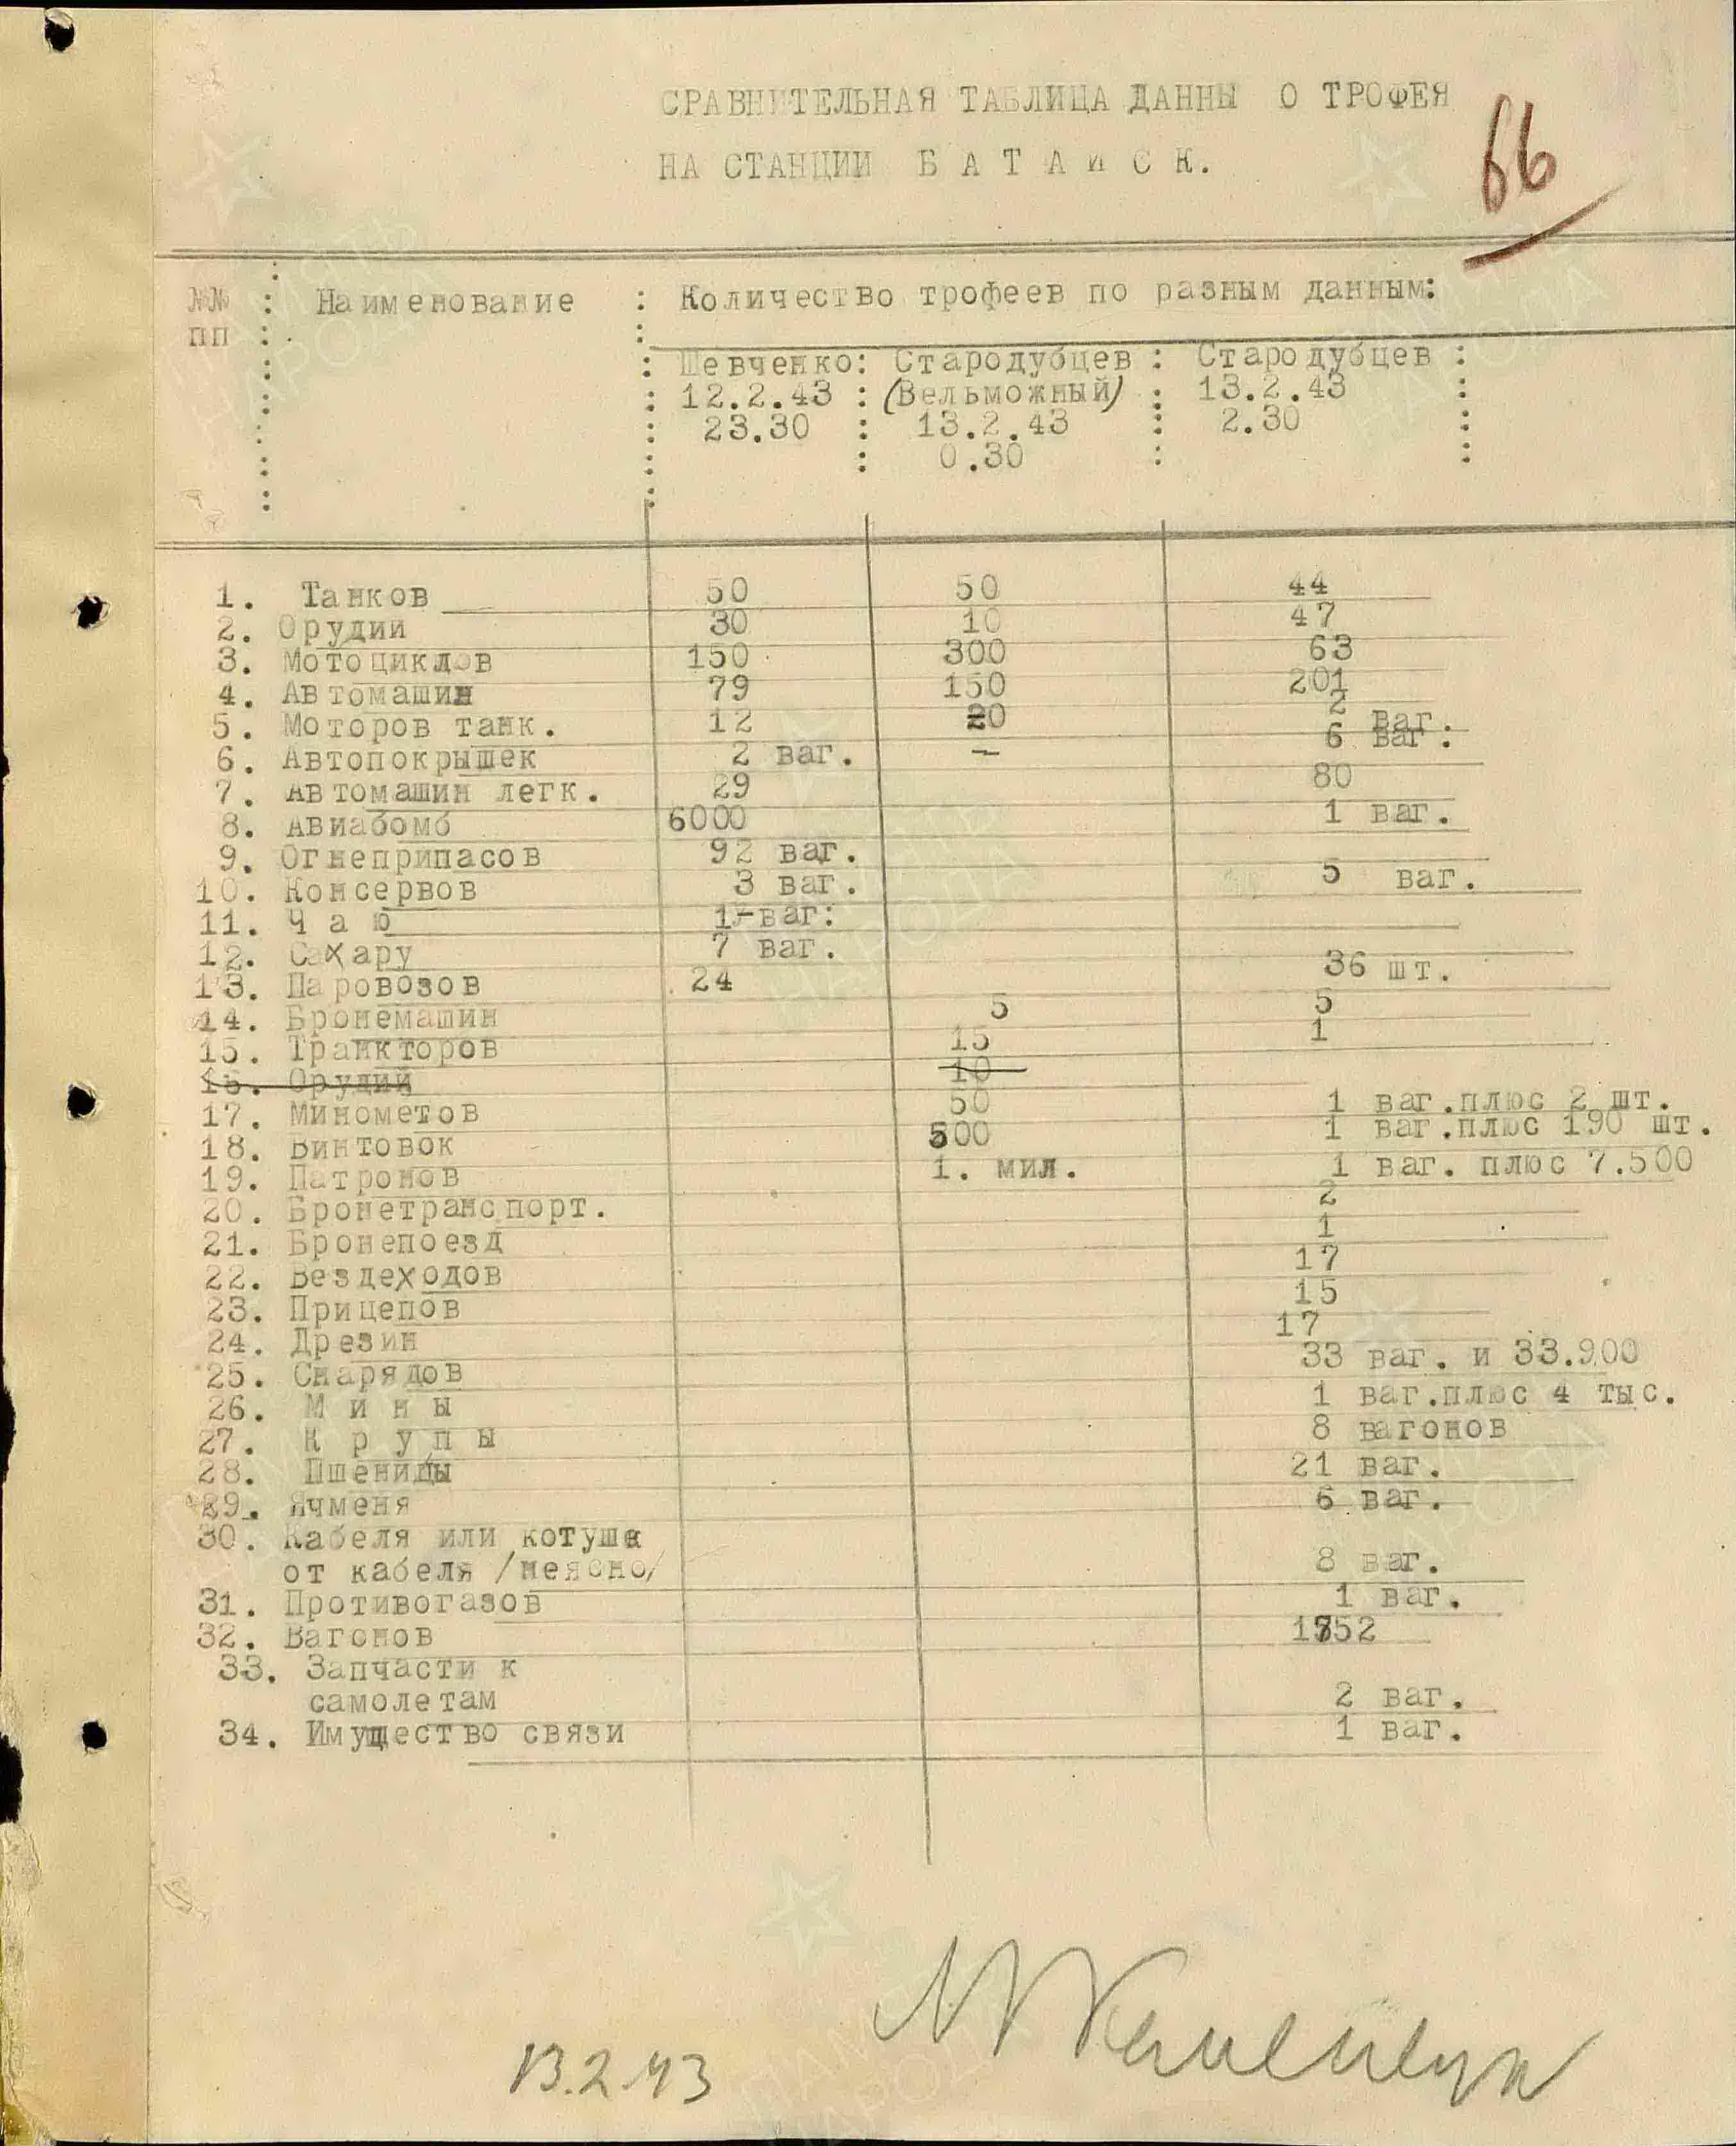 СРАВНИТЕЛЬНАЯ ТАБЛИЦА ДАННЫ О ТРОФЕЯ
НА СТАНЦИИ Б А Т А Й С К.
66
№№ : Наименование : Количество трофеев по разным данным:
ПП
Шевченко: Стародубцев : Стародубцев :
12.2.43 : (Вельможный) : 13.2.43 :
23.30 : 13.2.43 : 2.30 :
: 0.30 : :
1. Танков 50 50 44
2. Орудий 30 10 47
3. Мотоциклов 150 300 63
4. Автомашин 79 150 201
5. Моторов танк. 12 20 2 ваг.
6. Автопокрышек 2 ваг. — 6 ваг.
7. Автомашин легк. 29 80
8. Авиабомб 6000 1 ваг.
9. Огнеприпасов 92 ваг.
10. Консервов 3 ваг. 5 ваг.
11. Ч а ю 1-ваг:
12. Сахару 7 ваг.
13. Паровозов 24 36 шт.
14. Бронемашин 5 5
15. Транкторов 15 1
16. Орудий 10
17. Минометов 50 1 ваг.плюс 2 шт.
18. Винтовок 500 1 ваг.плюс 190 шт.
19. Патронов 1. мил. 1 ваг. плюс 7.500
20. Бронетранспорт. 2
21. Бронепоезд 1
22. Вездеходов 17
23. Прицепов 15
24. Дрезин 17
25. Снарядов 33 ваг. и 33.900
26. М и н ы 1 ваг.плюс 4 тыс.
27. К р у п ы 8 вагонов
28. Пшеницы 21 ваг.
29. Ячменя 6 ваг.
30. Кабеля или котушк
от кабеля /неясно/ 8 ваг.
31. Противогазов 1 ваг.
32. Вагонов
33. Запчасти к
самолетам 2 ваг.
34. Имущество связи 1 ваг.
13.2.43